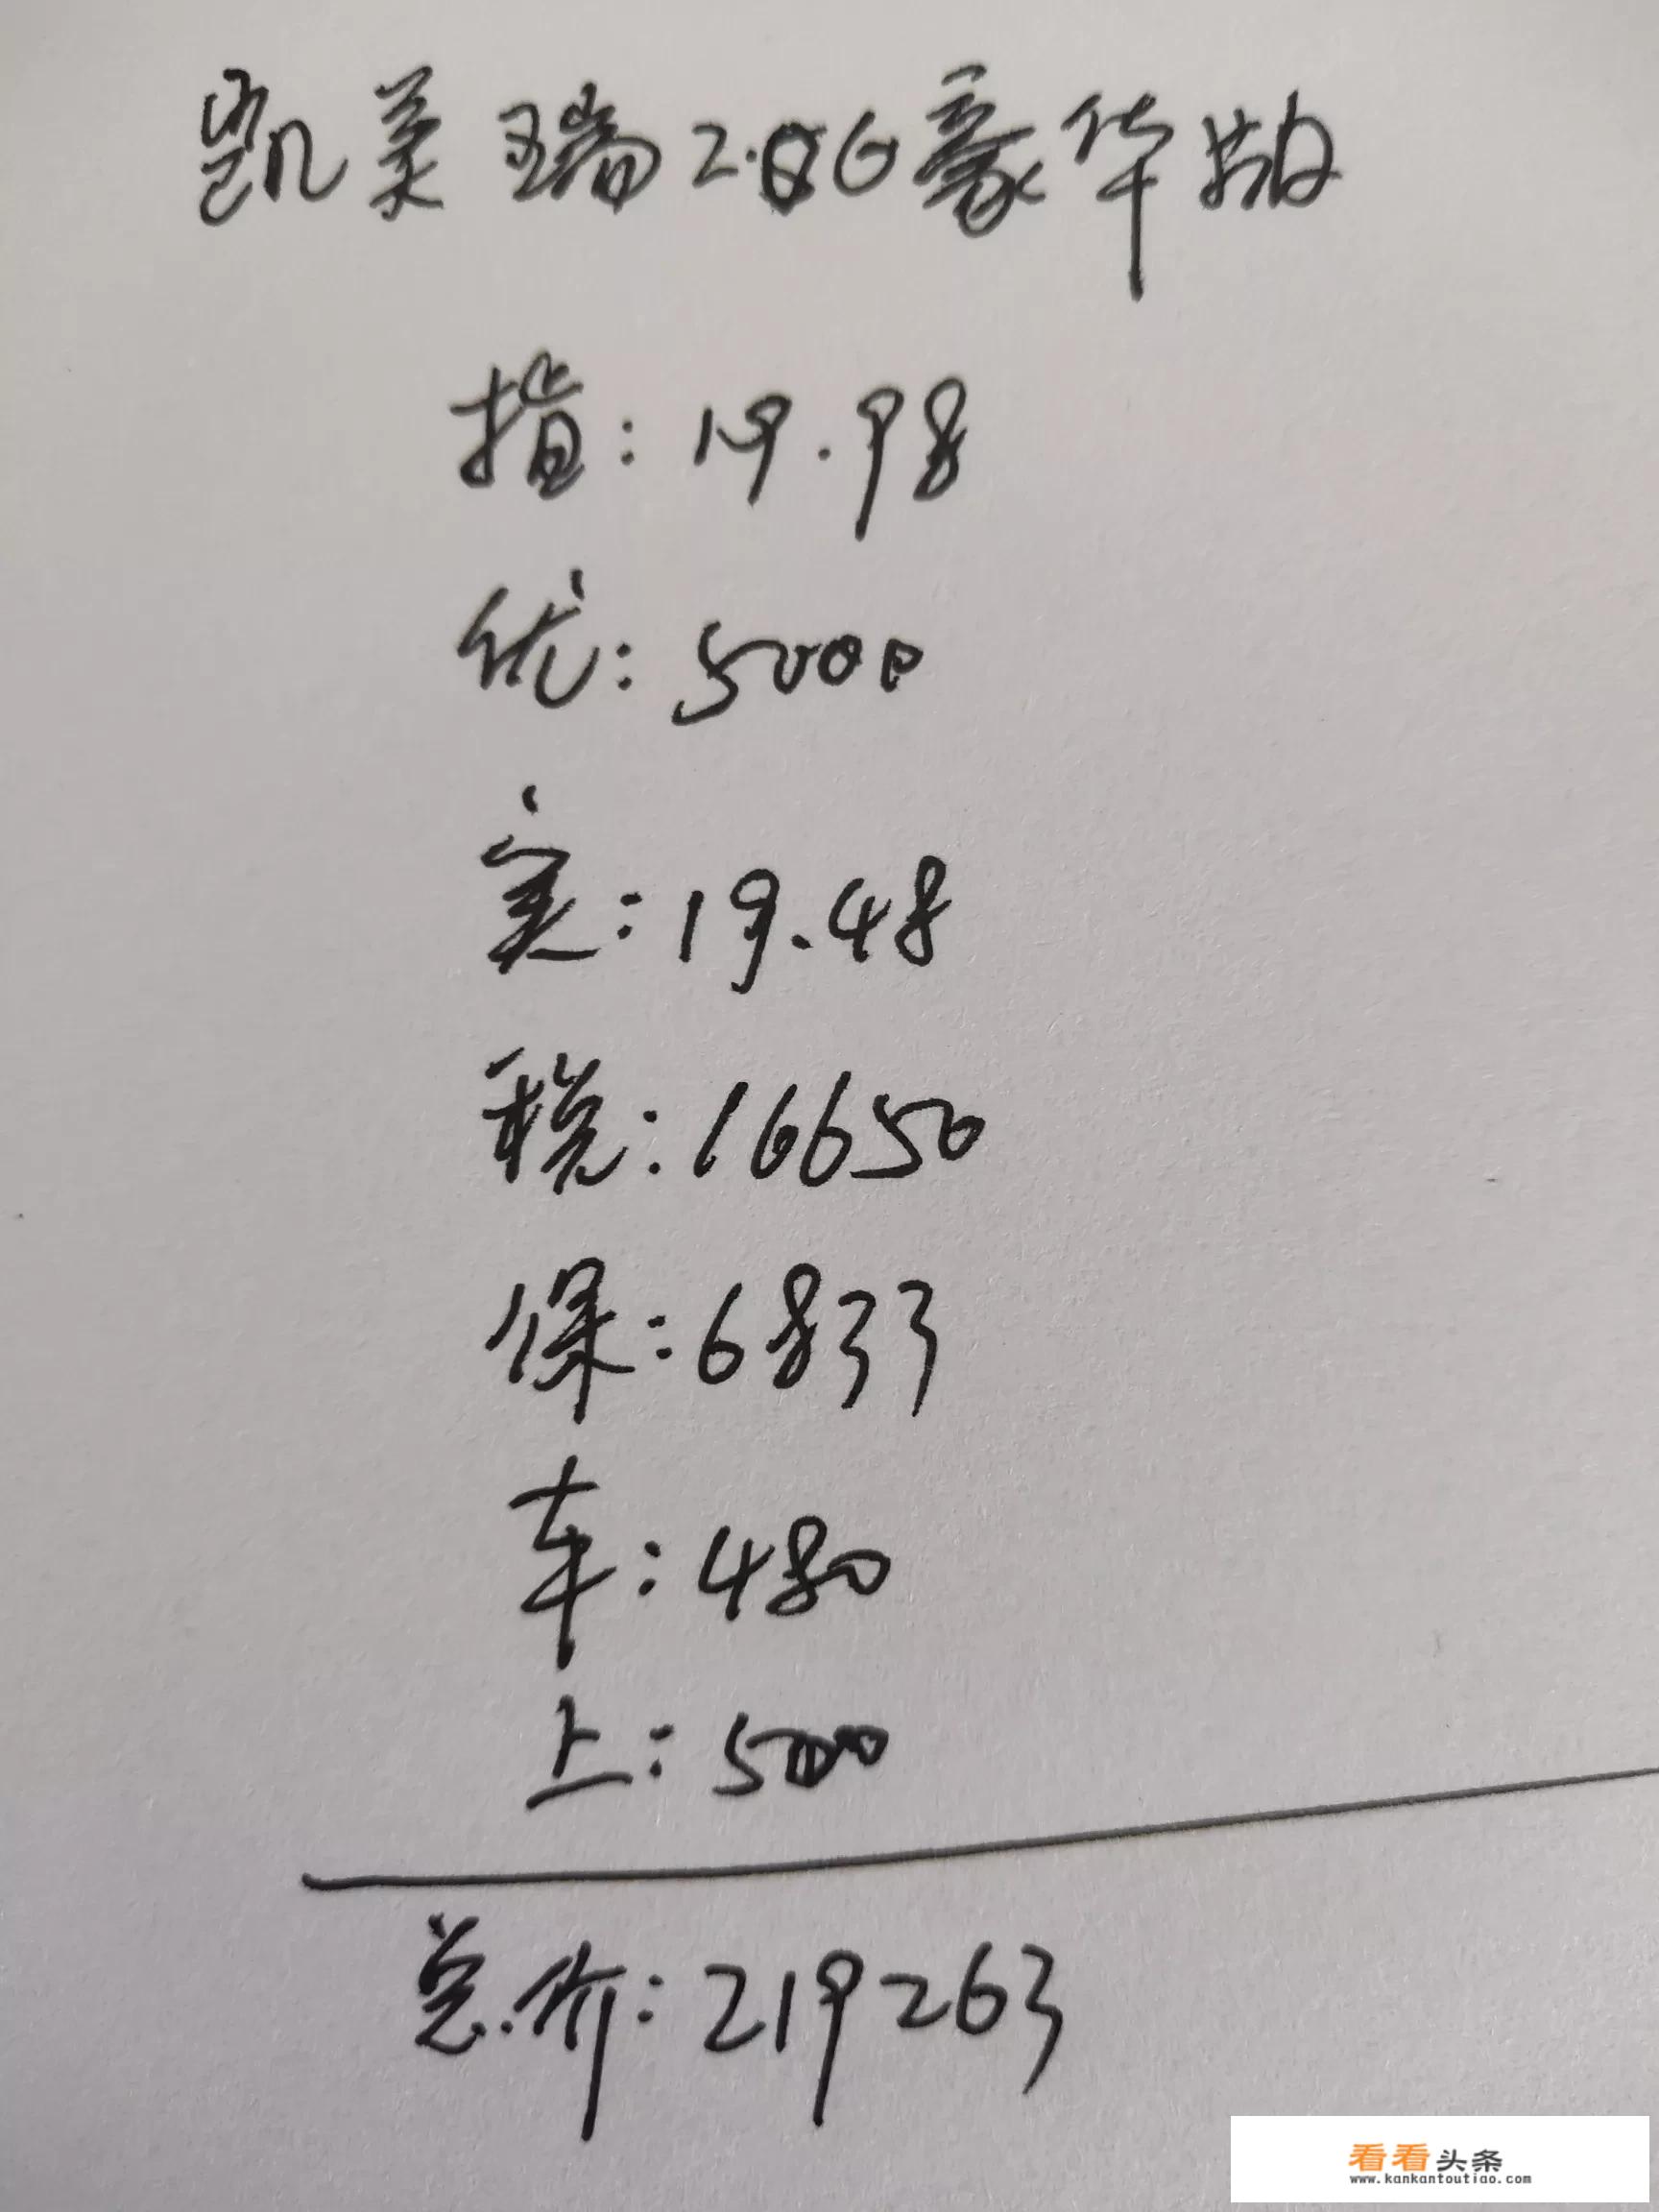 凯美瑞2.0G豪华版
指:19.98
优:5000
实:19.48
税:16650
保:6833
车:480
上:500
总价:219263
看看头条
www.kankantoutiao.com